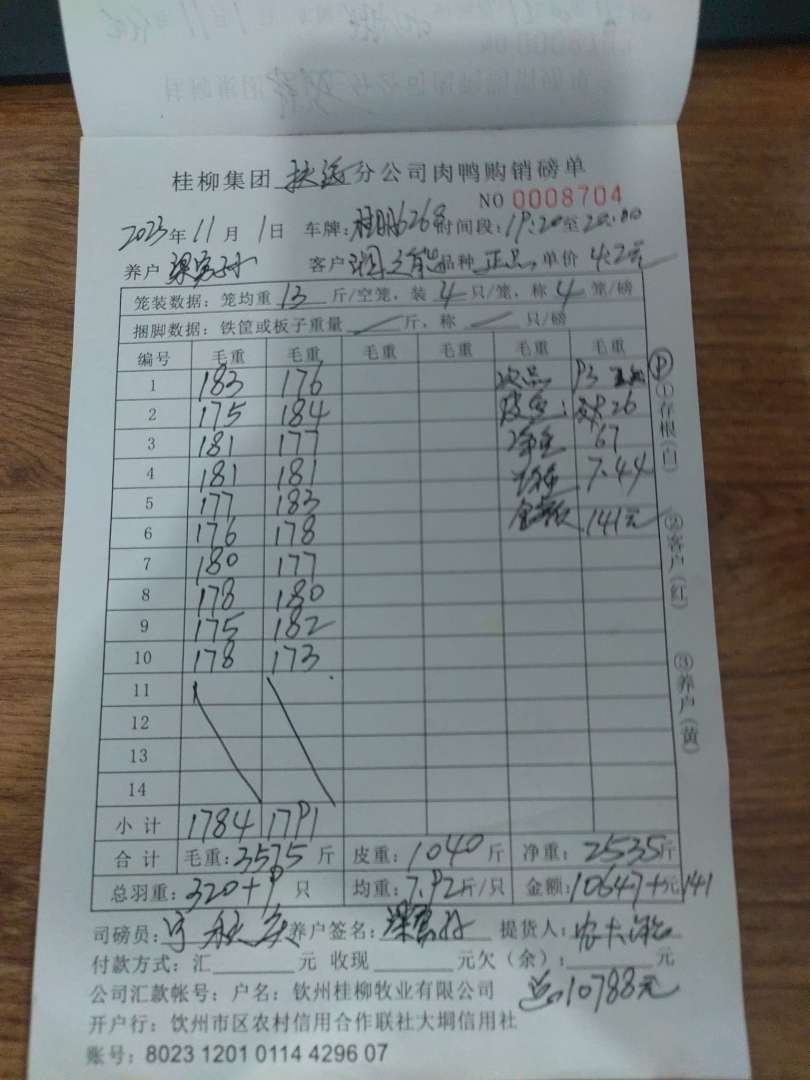 桂柳集团 扶绥 分公司肉鸭购销磅单
NO 0008704
2023年 11月 1日 车牌: 时间段: 19:20至20:00
养户 客户 品种 正品 单价 4.2元
笼装数据: 笼均重 13 斤/空笼, 装 4 只/笼, 称 4 笼/磅
捆脚数据: 铁筐或板子重量 斤, 称 只/磅
编号 毛重 毛重 毛重 毛重 毛重 毛重
1 183 176 次品 93
2 175 184 皮重: 26
3 181 177 净重 67
4 181 181 7.44
5 177 183 金额 141元
6 176 178
7 180 177
8 178 180
9 175 182
10 178 173
11
12
13
14
小计 1784 1791
合计 毛重: 3575 斤 皮重: 1040 斤 净重: 2535斤
总羽重: 320+9 只 均重: 7.92斤/只 金额: 10647+元141
司磅员: 养户签名: 提货人:
付款方式: 汇 元 收现 元欠(余): 元
公司汇款帐号: 户名: 钦州桂柳牧业有限公司 总10788元
开户行: 饮州市区农村信用合作联社大垌信用社
账号: 8023 1201 0114 4296 07
①存根(白)
②客户(红)
③养户(黄)